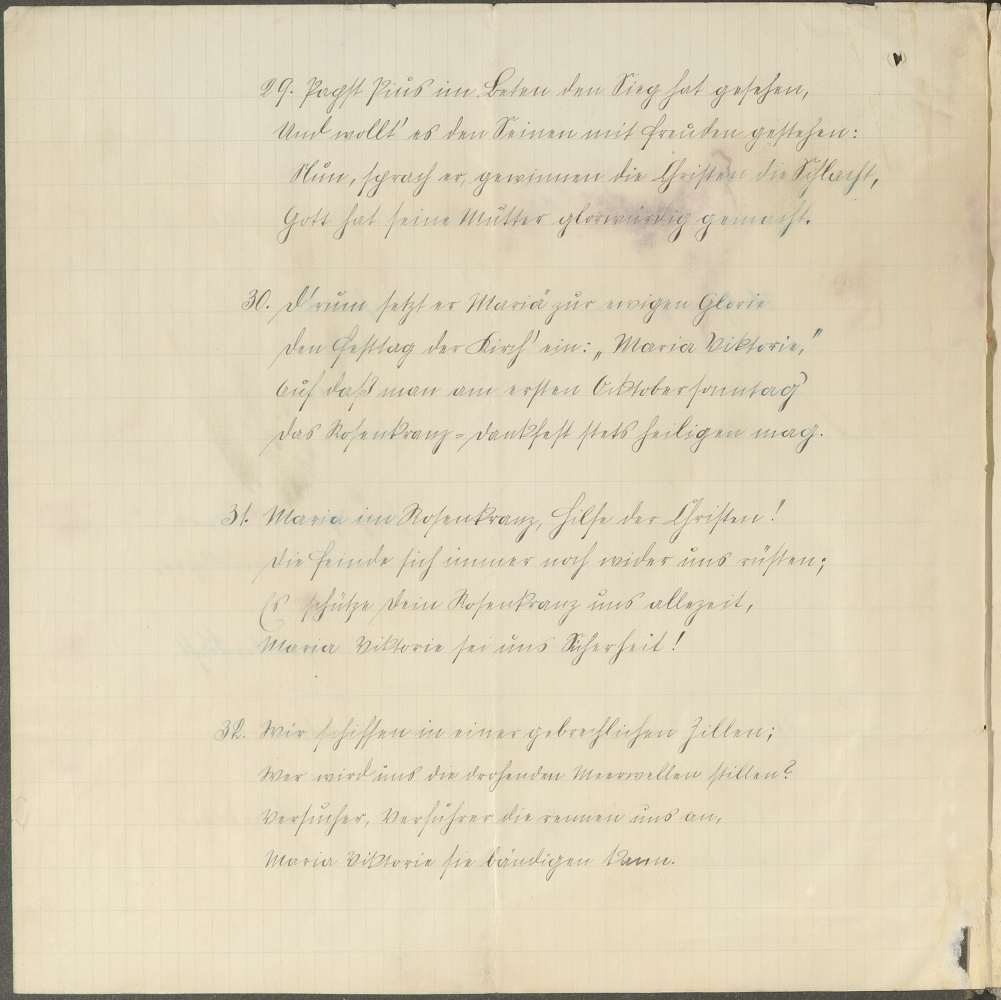 29. Papst Pius im Beten den Sieg hat gesehen,
Und wollt' es den Seinen mit Freuden gestehen:
Nun, sprach er, gewinnen die Christen die Schlacht,
Gott hat seine Mutter glorwürdig gemacht.
30. D'rum setzt er Mariä zur ewigen Glorie
Den Festtag der Kirch' ein: „Maria Viktorie,"
Auf daß man am ersten Ocktobersonntag
Das Rosenkranz=Dankfest stets heiligen mag.
31. Maria im Rosenkranz, Hilfe der Christen!
Die Feinde sich immer noch wider uns rüsten;
Es schütze Dein Rosenkranz uns allezeit,
Maria Viktorie sei uns Sicherheit!
32. Wir schiffen in einer gebrechlichen Zillen;
Wer wird uns die drohenden Meerwellen stillen?
Versucher, Verführer die rennen uns an,
Maria Viktorie sie bändigen kann.